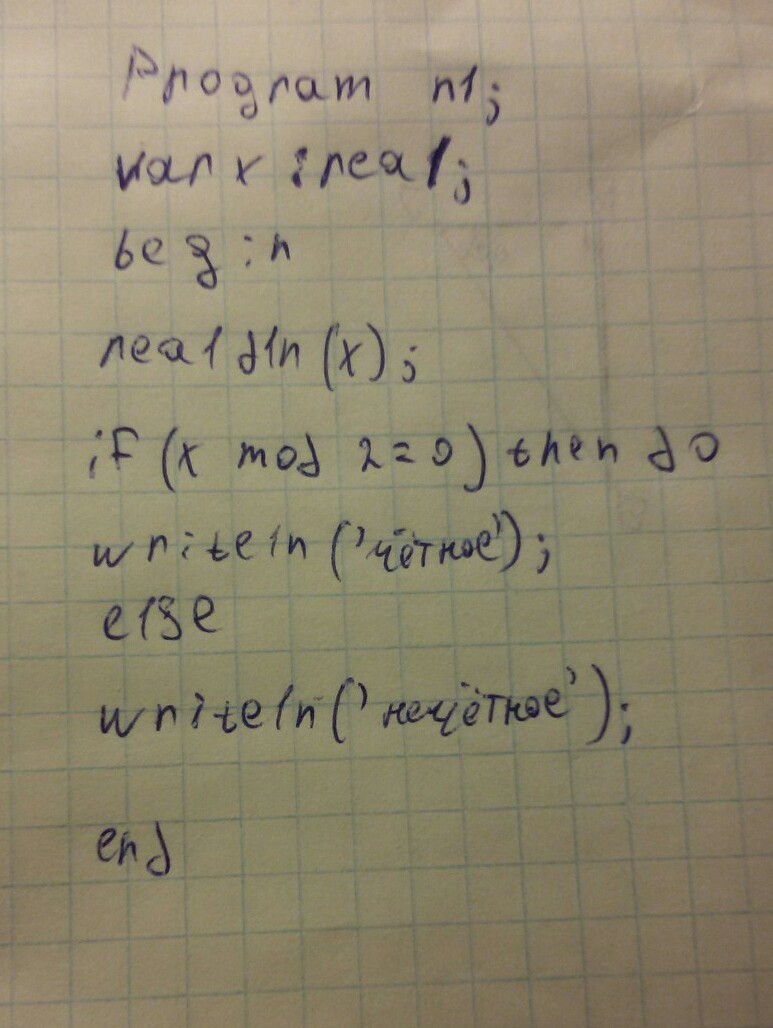 Program n1;
var x : real;
begin
realdln (x);
if (x mod 2 = 0) then do
writeln ('чётное');
else
writeln ('нечётное');
end